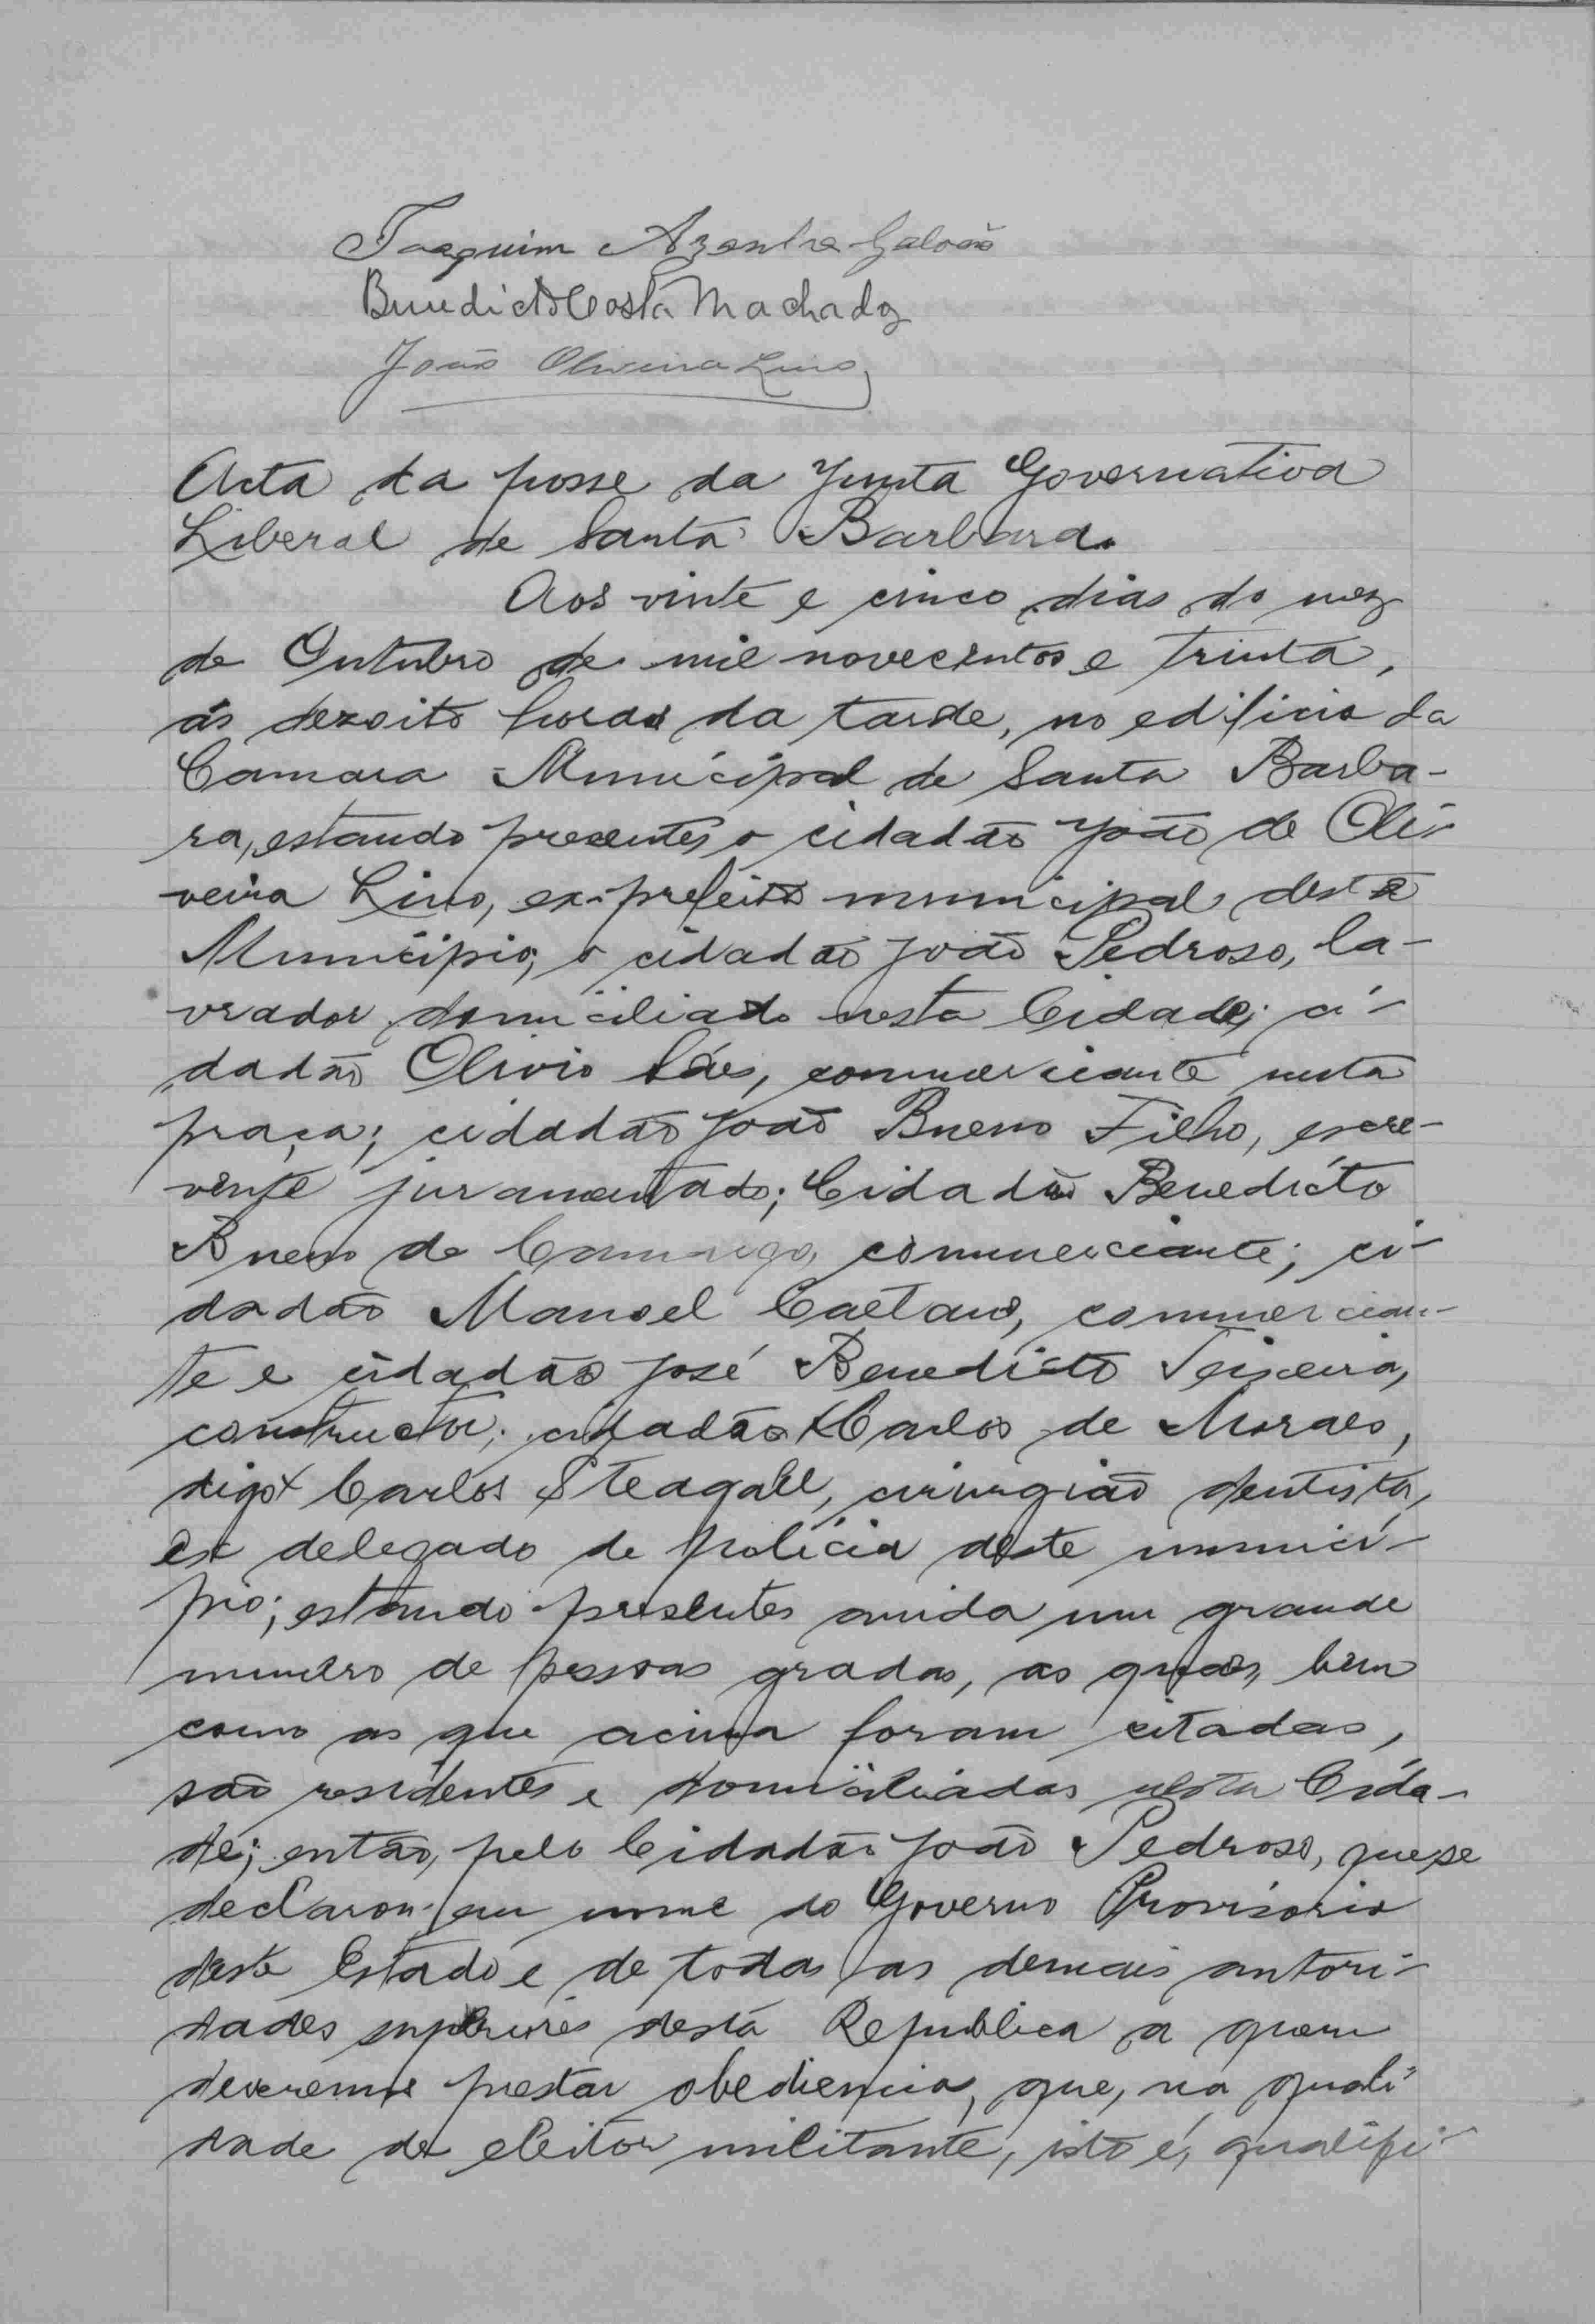 Joaquim Azanha Galvão
Benedicto Costa Machado
João Oliveira Lino
Acta da posse da Junta Governativa
Liberal de Santa Barbara.
Aos vinte e cinco dias do mez
de Outubro de mil novecentos e trinta,
ás dezoito horas da tarde, no edificio da
Camara Municipal de Santa Barba-
ra, estando presentes o cidadão João de Oli-
veira Lino, ex-prefeito municipal deste
Municipio; o cidadão João Pedroso, la-
vrador domiciliado nesta Cidade; ci-
dadão Olivio Sáes, commerciante nesta
praça; cidadão João Bueno Filho, escre-
vente juramentado; Cidadão Benedicto
Bueno de Camargo, commerciante; ci-
dadão Manoel Caetano, commercian-
te e cidadão José Benedicto Teixeira,
constructor; cidadão Carlos de Moraes,
digo Carlos Steagall, cirurgião dentista,
ex delegado de policia deste munici-
pio; estando presentes ainda um grande
numero de pessoas gradas, as quaes, bem
como as que acima foram citadas,
são residentes e domiciliadas nesta Cida-
de; então, pelo Cidadão João Pedroso, que se
declarou em nome do Governo Provisorio
deste Estado e de todas as demais autori-
dades superiores desta Republica a quem
deveremos prestar obediencia, que, na quali-
dade de eleitor militante, isto é, qualifi-